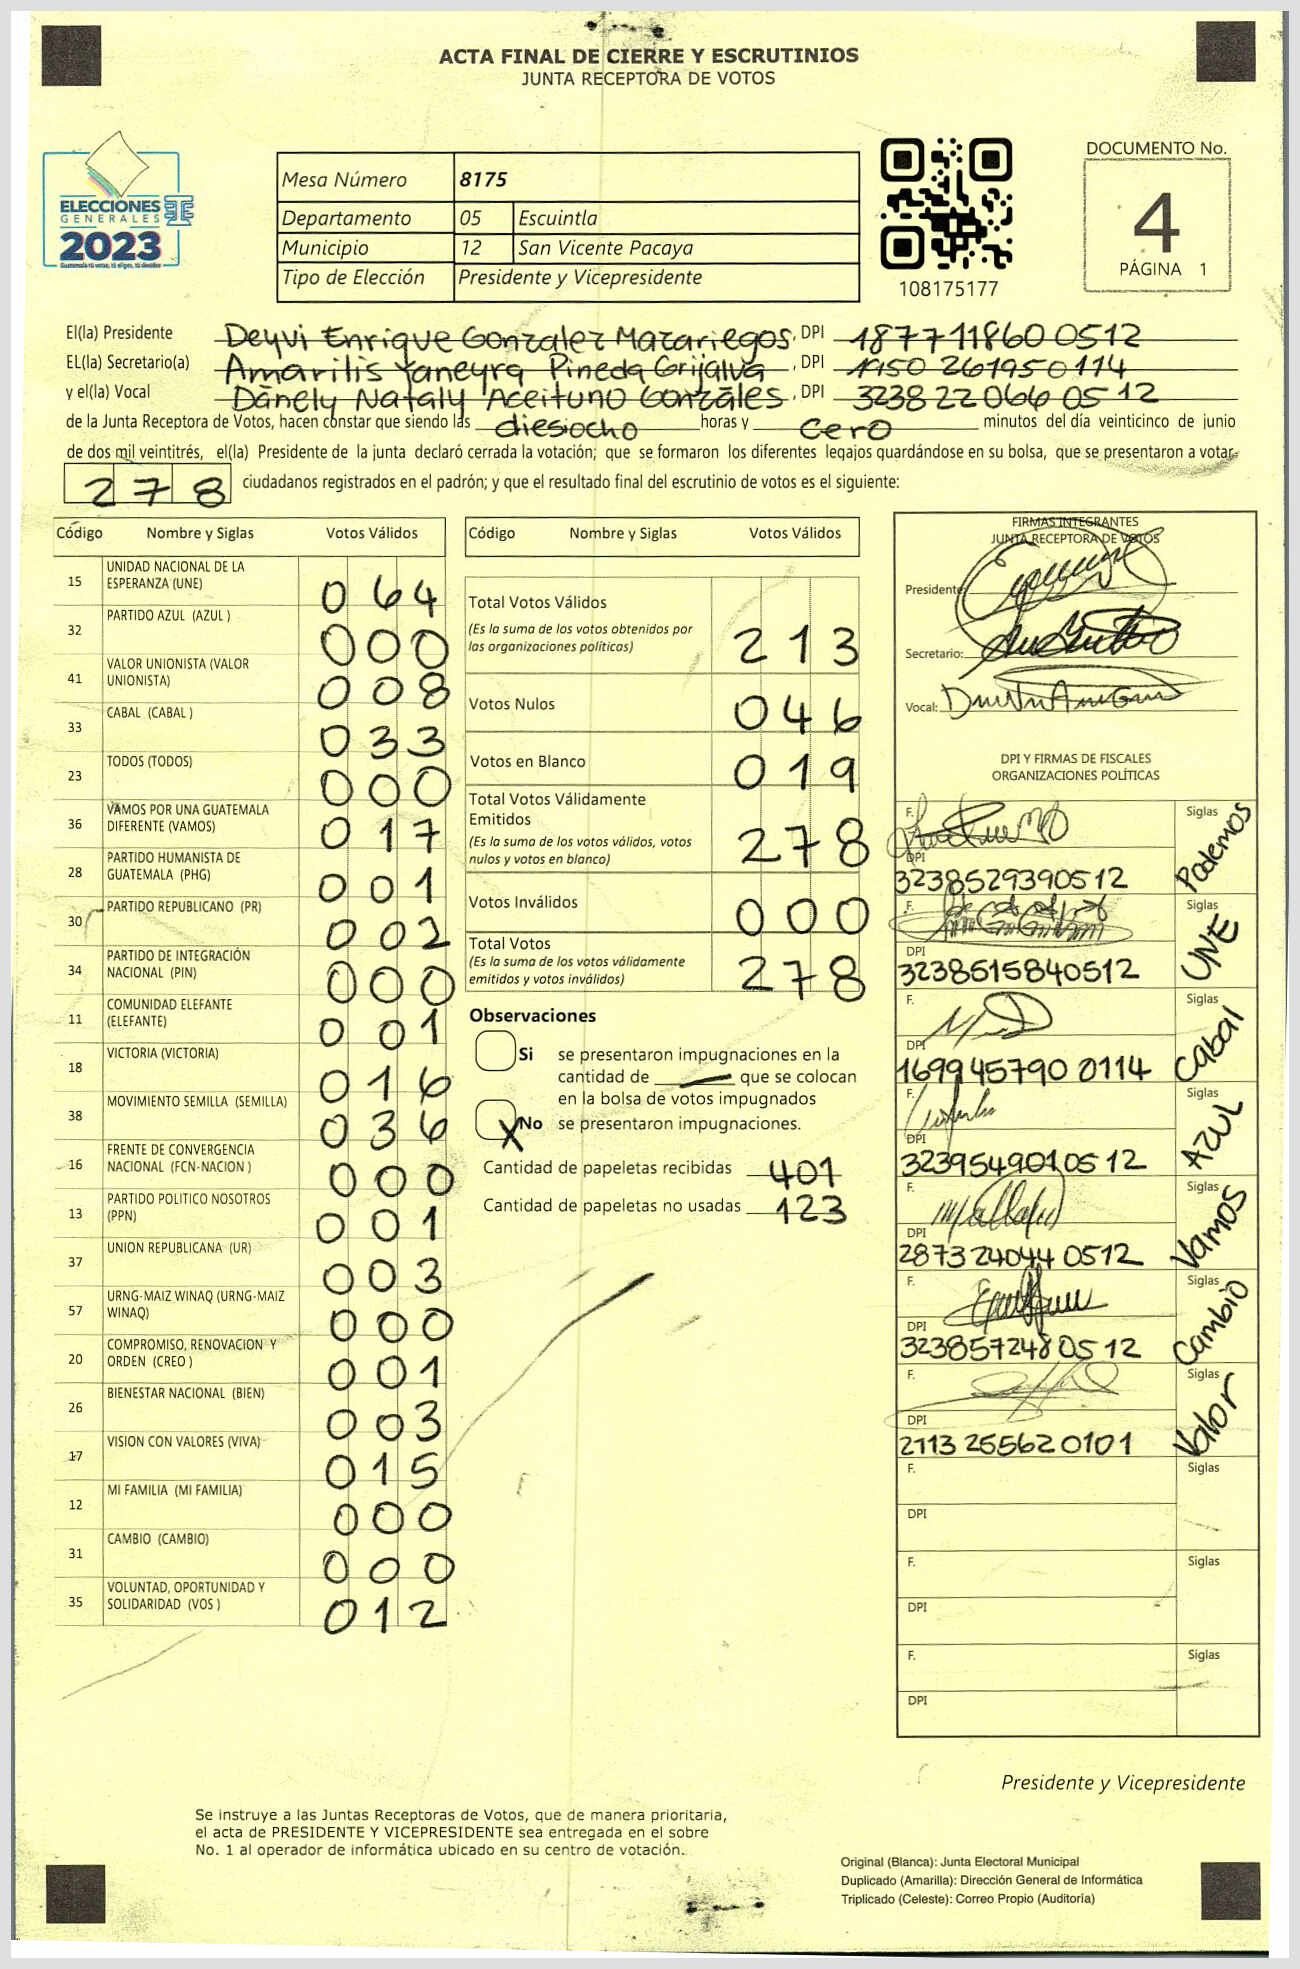 ACTA FINAL DE CIERRE Y ESCRUTINIOS
JUNTA RECEPTORA DE VOTOS
ELECCIONES
GENERALES
2023
Mesa Número 8175
Departamento 05 Escuintla
Municipio 12 San Vicente Pacaya
Tipo de Elección Presidente y Vicepresidente
108175177
DOCUMENTO No.
4
PÁGINA 1
El(la) Presidente Deyvi Enrique Gonzalez Mazariegos, DPI 187711860 0512
EL(la) Secretario(a) Amarilis Yaneyra Pineda Grijalva, DPI 1950 261950114
y el(la) Vocal Dánely Nataly Aceituno Gonzáles, DPI 3238 22066 0512
de la Junta Receptora de Votos, hacen constar que siendo las diesiocho horas y cero minutos del día veinticinco de junio
de dos mil veintitrés, el(la) Presidente de la junta declaró cerrada la votación; que se formaron los diferentes legajos quardándose en su bolsa, que se presentaron a votar
278 ciudadanos registrados en el padrón; y que el resultado final del escrutinio de votos es el siguiente:
Código Nombre y Siglas Votos Válidos
15 UNIDAD NACIONAL DE LA ESPERANZA (UNE) 064
32 PARTIDO AZUL (AZUL ) 000
41 VALOR UNIONISTA (VALOR UNIONISTA) 008
33 CABAL (CABAL ) 033
23 TODOS (TODOS) 000
36 VAMOS POR UNA GUATEMALA DIFERENTE (VAMOS) 017
28 PARTIDO HUMANISTA DE GUATEMALA (PHG) 001
30 PARTIDO REPUBLICANO (PR) 002
34 PARTIDO DE INTEGRACIÓN NACIONAL (PIN) 000
11 COMUNIDAD ELEFANTE (ELEFANTE) 001
18 VICTORIA (VICTORIA) 016
38 MOVIMIENTO SEMILLA (SEMILLA) 036
16 FRENTE DE CONVERGENCIA NACIONAL (FCN-NACION ) 000
13 PARTIDO POLITICO NOSOTROS (PPN) 001
37 UNION REPUBLICANA (UR) 003
57 URNG-MAIZ WINAQ (URNG-MAIZ WINAQ) 000
20 COMPROMISO, RENOVACION Y ORDEN (CREO ) 001
26 BIENESTAR NACIONAL (BIEN) 003
17 VISION CON VALORES (VIVA) 015
12 MI FAMILIA (MI FAMILIA) 000
31 CAMBIO (CAMBIO) 000
35 VOLUNTAD, OPORTUNIDAD Y SOLIDARIDAD (VOS ) 012
Código Nombre y Siglas Votos Válidos
Total Votos Válidos 213
(Es la suma de los votos obtenidos por
las organizaciones políticas)
Votos Nulos 046
Votos en Blanco 019
Total Votos Válidamente
Emitidos 278
(Es la suma de los votos válidos, votos
nulos y votos en blanco)
Votos Inválidos 000
Total Votos 278
(Es la suma de los votos válidamente
emitidos y votos inválidos)
Observaciones
Si se presentaron impugnaciones en la
cantidad de que se colocan
en la bolsa de votos impugnados
X No se presentaron impugnaciones.
Cantidad de papeletas recibidas 401
Cantidad de papeletas no usadas 123
FIRMAS INTEGRANTES
JUNTA RECEPTORA DE VOTOS
Presidente:
Secretario:
Vocal:
DPI Y FIRMAS DE FISCALES
ORGANIZACIONES POLÍTICAS
F. Siglas Podemos
DPI 3238529390512
F. Siglas UNE
DPI 3238515840512
F. Siglas Cabal
DPI 169945790 0114
F. Siglas AZUL
DPI 3239549010512
F. Siglas Vamos
DPI 2873 24044 0512
F. Siglas Cambio
DPI 323857248 0512
F. Siglas Valor
DPI 2113 25562 0101
F. Siglas
DPI
F. Siglas
DPI
F. Siglas
DPI
Presidente y Vicepresidente
Se instruye a las Juntas Receptoras de Votos, que de manera prioritaria,
el acta de PRESIDENTE Y VICEPRESIDENTE sea entregada en el sobre
No. 1 al operador de informática ubicado en su centro de votación.
Original (Blanca): Junta Electoral Municipal
Duplicado (Amarilla): Dirección General de Informática
Triplicado (Celeste): Correo Propio (Auditoría)